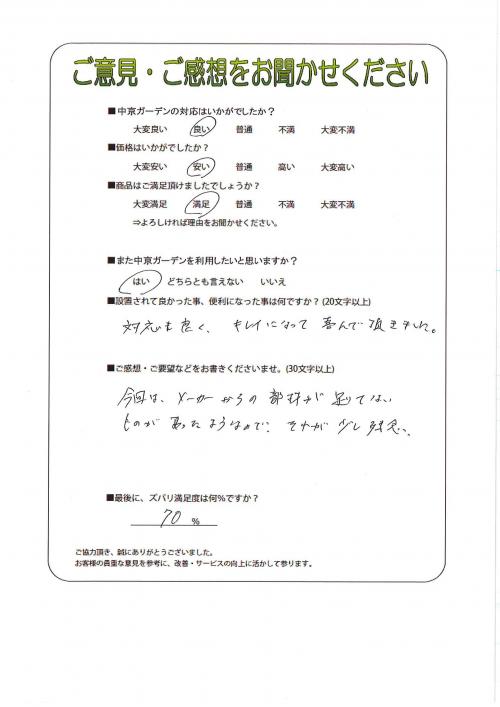 ご意見・ご感想をお聞かせください
■中京ガーデンの対応はいかがでしたか？
大変良い 良い 普通 不満 大変不満
■価格はいかがでしたか？
大変安い 安い 普通 高い 大変高い
■商品はご満足頂けましたでしょうか？
大変満足 満足 普通 不満 大変不満
⇒よろしければ理由をお聞かせください。
■また中京ガーデンを利用したいと思いますか？
はい どちらとも言えない いいえ
■設置されて良かった事、便利になった事は何ですか？(20文字以上)
対応も良く、キレイになって喜んで頂きました。
■ご感想・ご要望などをお書きくださいませ。(30文字以上)
今回は、メーカーからの部材が足りてない
ものがあったようなので、それが少し残念、
■最後に、ズバリ満足度は何％ですか？
70 %
ご協力頂き、誠にありがとうございました。
お客様の貴重な意見を参考に、改善・サービスの向上に活かして参ります。